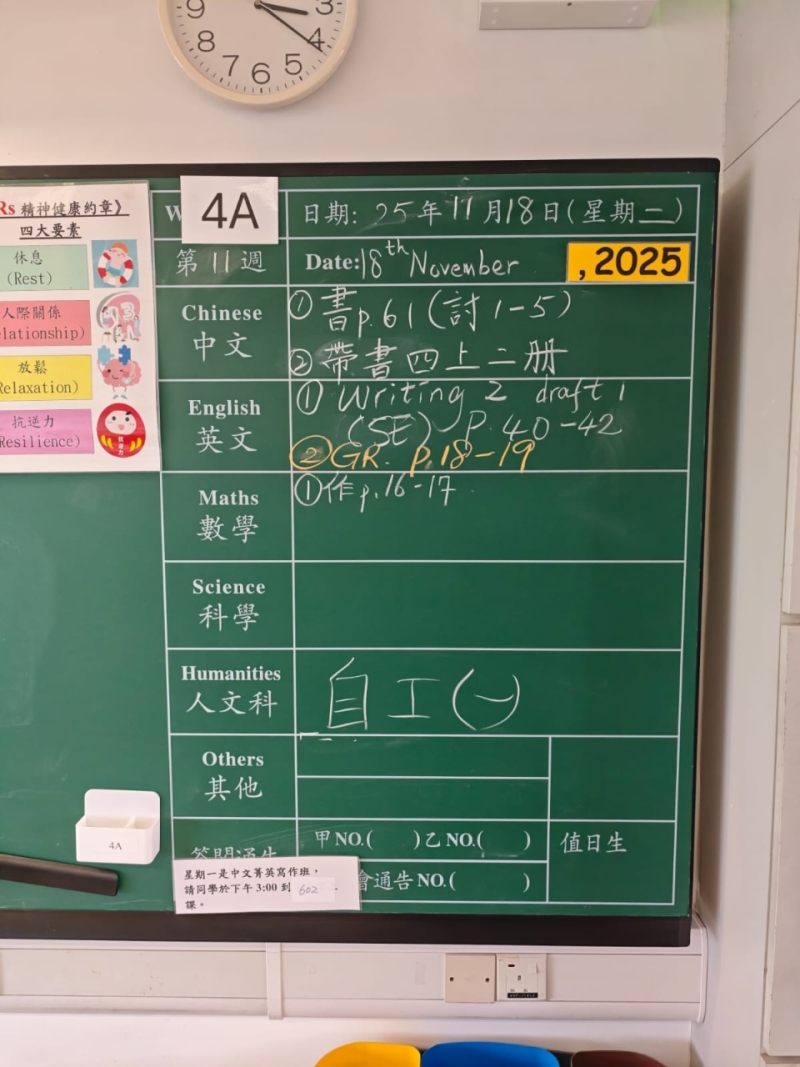 9
3
8
4
7
6
5
Rs 精神健康約章》
四大要素
休息
(Rest)
人際關係
elationship)
放鬆
Relaxation)
抗逆力
Resilience)
4A
日期: 25年11月18日(星期二)
第 11 週
Date: 18th November , 2025
Chinese
中文
① 書p.61(討1-5)
② 帶書四上二册
English
英文
① Writing 2 draft 1
(SE) P.40-42
② GR. p.18-19
Maths
數學
① 作p.16-17
Science
科學
Humanities
人文科
自工(一)
Others
其他
甲NO.( )乙NO.( )
值日生
會通告NO.( )
4A
星期一是中文菁英寫作班，
請同學於下午3:00到 602
課。